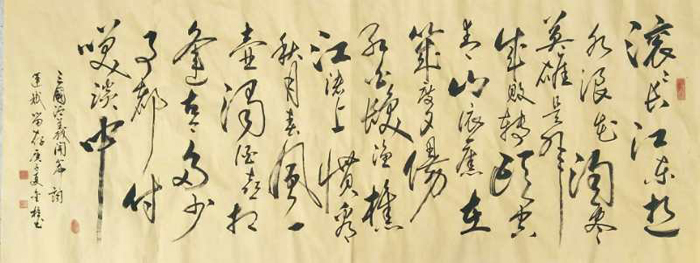 滚滚长江东逝
水浪花淘尽
英雄是非
成败转头空
青山依舊在
幾度夕陽
红白髮渔樵
江渚上惯看
秋月春风一
壶濁酒喜相
逢古今多少
事都付
笑谈中
三國演義開篇詞
庚子夏